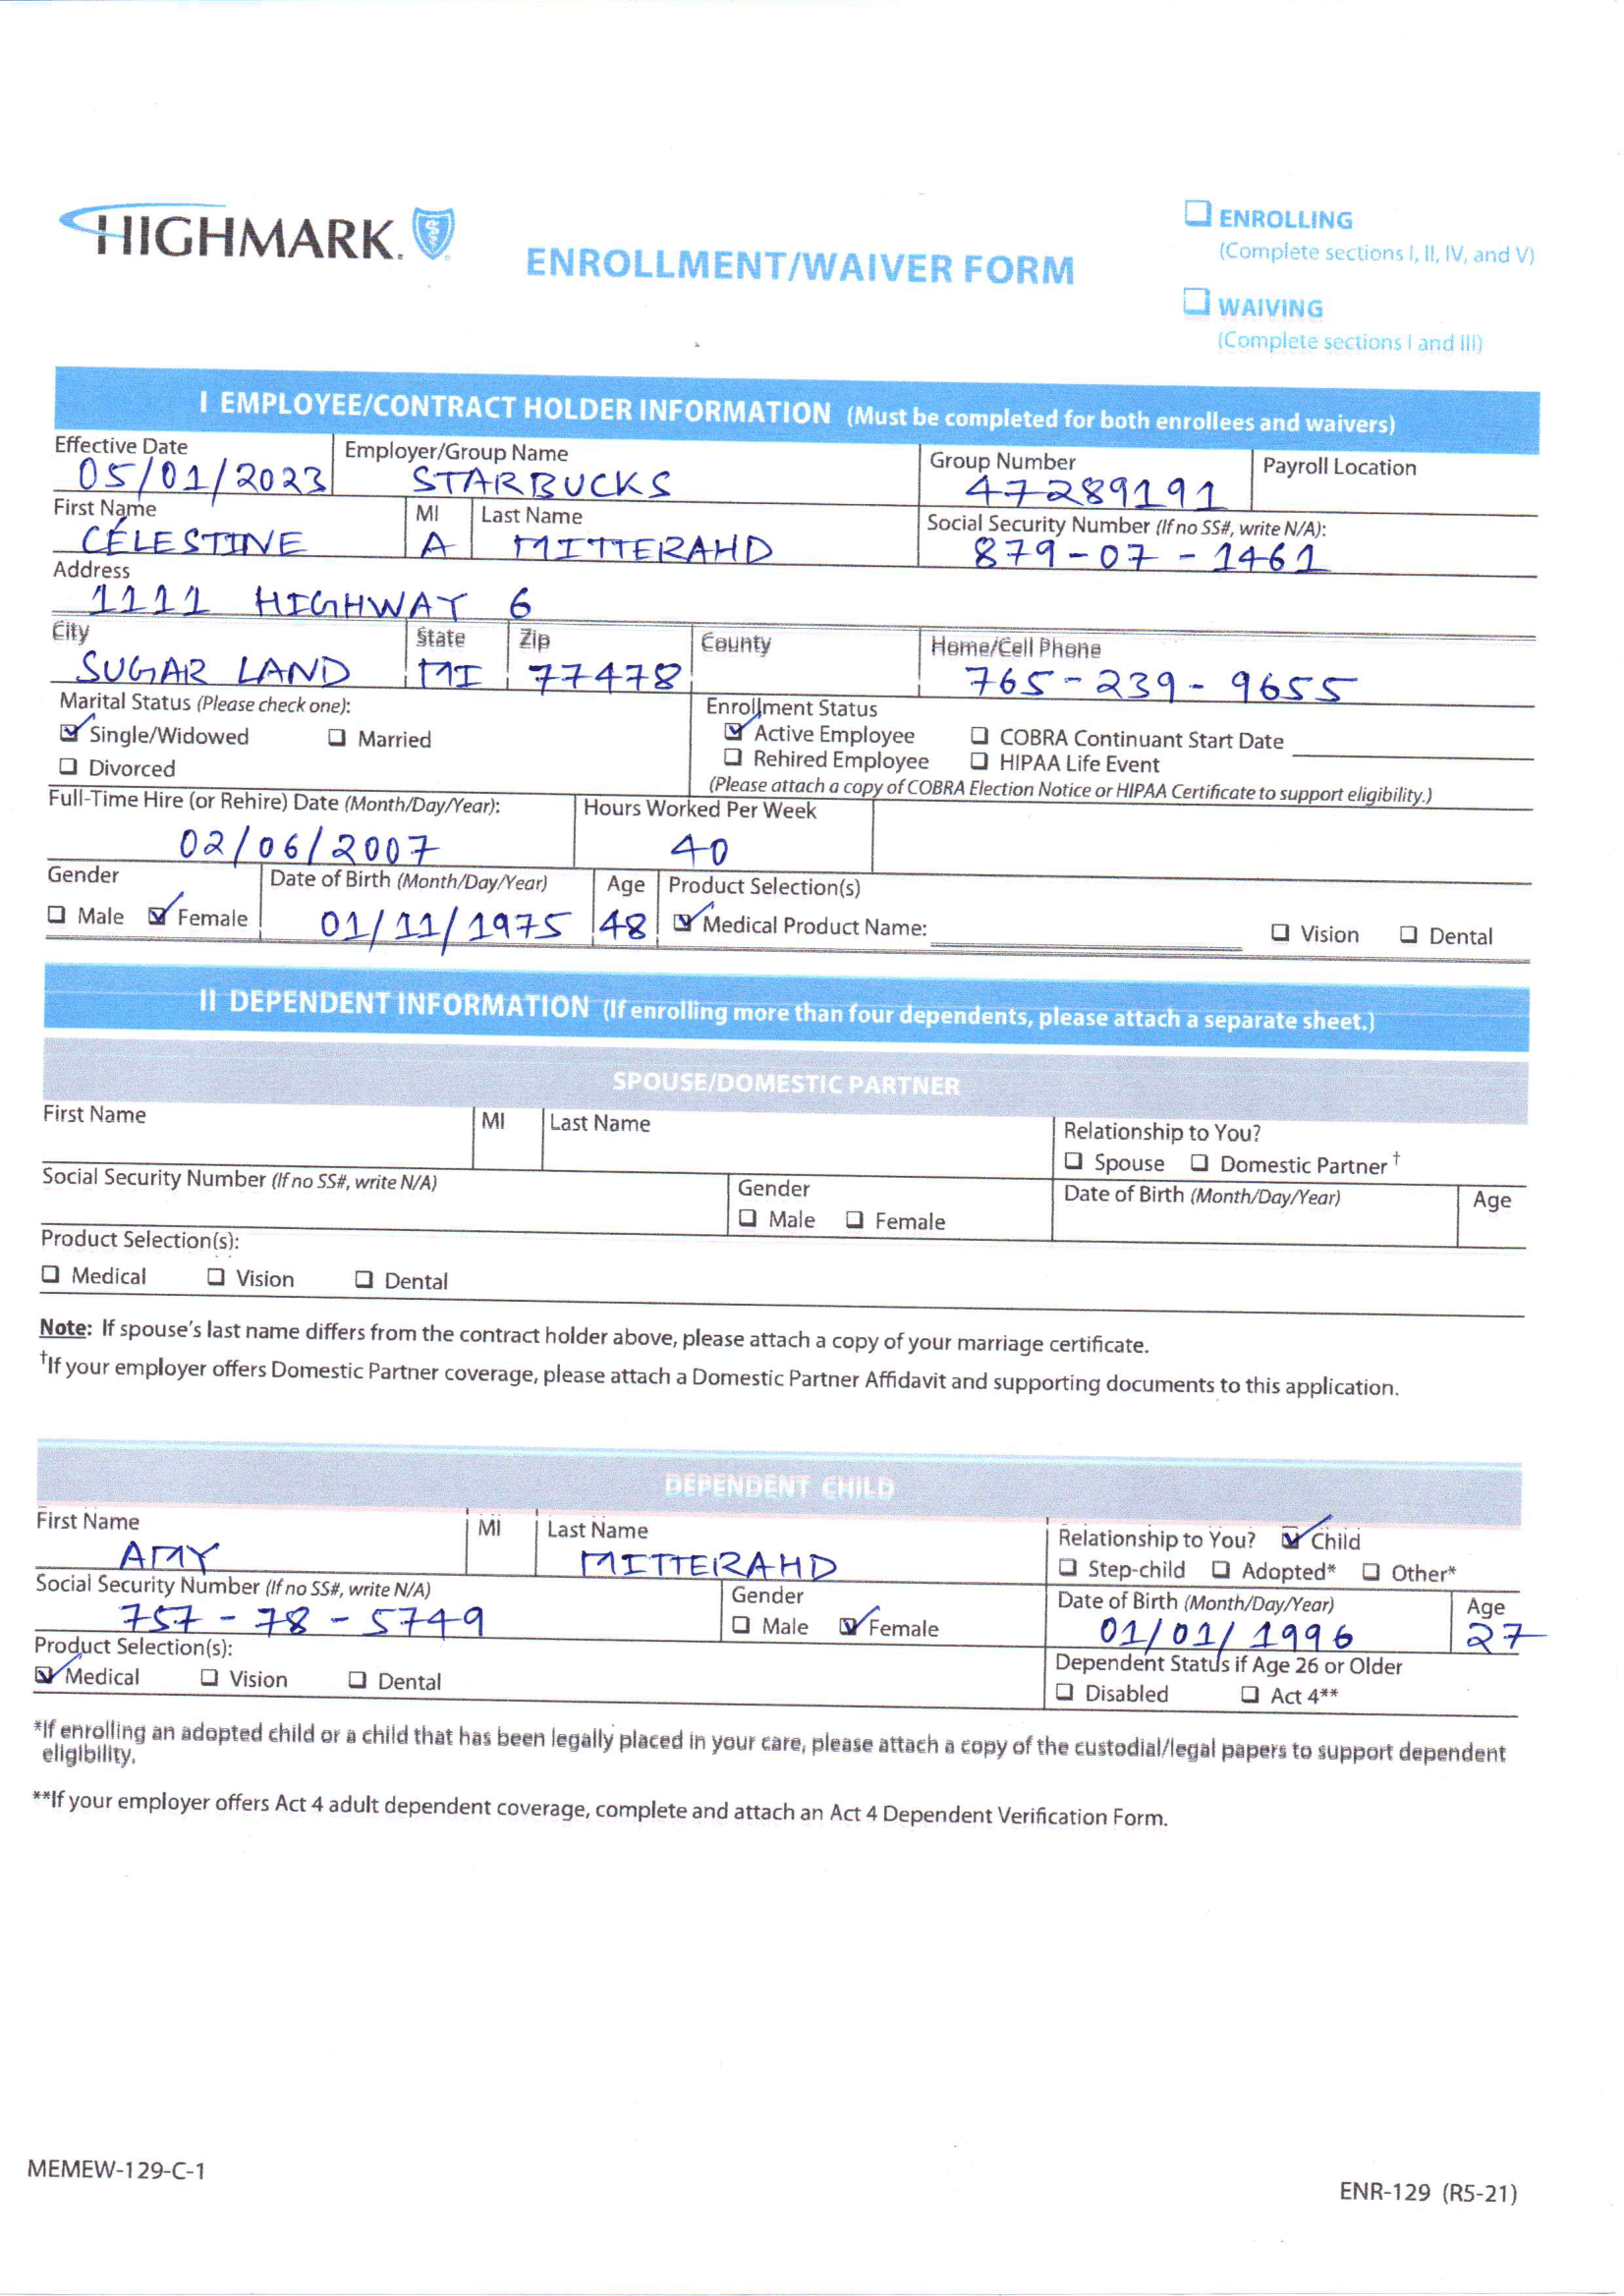 HIGHMARK.
ENROLLMENT/WAIVER FORM
ENROLLING
(Complete sections I, II, IV, and V)
WAIVING
(Complete sections I and III)
I EMPLOYEE/CONTRACT HOLDER INFORMATION (Must be completed for both enrollees and waivers)
Effective Date Employer/Group Name Group Number Payroll Location
05/01/2023 STARBUCKS 47289191
First Name MI Last Name Social Security Number (If no SS#, write N/A):
CÉLESTINE A MITTERAHD 879-07-1461
Address
1111 HIGHWAY 6
City State Zip County Home/Cell Phone
SUGAR LAND MI 77478 765-239-9655
Marital Status (Please check one): Enrollment Status
Single/Widowed Married Active Employee COBRA Continuant Start Date
Divorced Rehired Employee HIPAA Life Event
(Please attach a copy of COBRA Election Notice or HIPAA Certificate to support eligibility.)
Full-Time Hire (or Rehire) Date (Month/Day/Year): Hours Worked Per Week
02/06/2007 40
Gender Date of Birth (Month/Day/Year) Age Product Selection(s)
Male Female 01/11/1975 48 Medical Product Name: Vision Dental
II DEPENDENT INFORMATION (If enrolling more than four dependents, please attach a separate sheet.)
SPOUSE/DOMESTIC PARTNER
First Name MI Last Name Relationship to You?
Spouse Domestic Partner †
Social Security Number (If no SS#, write N/A) Gender Date of Birth (Month/Day/Year) Age
Male Female
Product Selection(s):
Medical Vision Dental
Note: If spouse's last name differs from the contract holder above, please attach a copy of your marriage certificate.
†If your employer offers Domestic Partner coverage, please attach a Domestic Partner Affidavit and supporting documents to this application.
DEPENDENT CHILD
First Name MI Last Name Relationship to You? Child
AMY MITTERAHD Step-child Adopted* Other*
Social Security Number (If no SS#, write N/A) Gender Date of Birth (Month/Day/Year) Age
757-78-5749 Male Female 01/01/1996 27
Product Selection(s): Dependent Status if Age 26 or Older
Medical Vision Dental Disabled Act 4**
*If enrolling an adopted child or a child that has been legally placed in your care, please attach a copy of the custodial/legal papers to support dependent
eligibility.
**If your employer offers Act 4 adult dependent coverage, complete and attach an Act 4 Dependent Verification Form.
MEMEW-129-C-1
ENR-129 (R5-21)